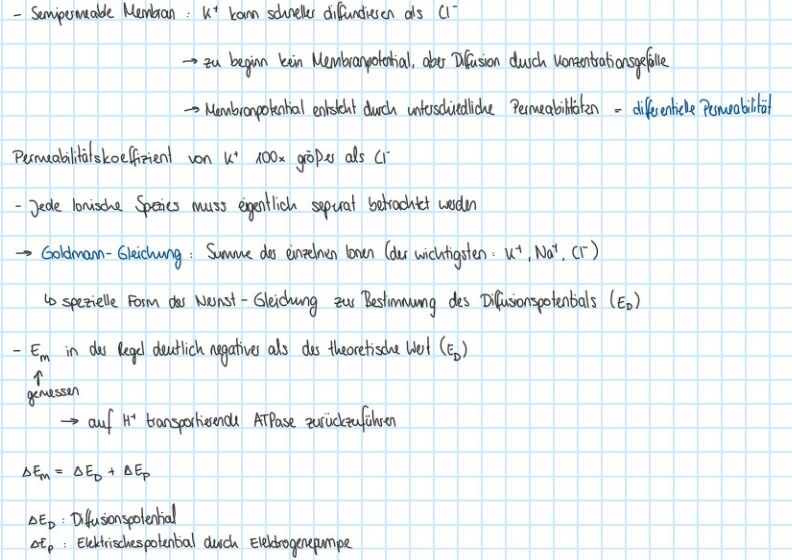 - Semipermeable Membran : K⁺ kann schneller diffundieren als Cl⁻
→ zu beginn kein Membranpotential, aber Diffusion durch Konzentrationsgefälle
→ Membranpotential entsteht durch unterschiedliche Permeabilitäten = differentielle Permeabilität
Permeabilitätskoeffizient von K⁺ 100x größer als Cl⁻
- Jede Ionische Spezies muss eigentlich separat betrachtet werden
→ Goldmann-Gleichung : Summe der einzelnen Ionen (der wichtigsten : K⁺, Na⁺, Cl⁻)
↳ spezielle Form der Nernst-Gleichung zur Bestimmung des Diffusionspotentials (E_D)
- E_m in der Regel deutlich negativer als der theoretische Wert (E_D)
↑
gemessen
→ auf H⁺ transportierende ATPase zurückzuführen
ΔE_m = ΔE_D + ΔE_p
ΔE_D : Diffusionspotential
ΔE_p : Elektrischespotential durch Elektrogenepumpe